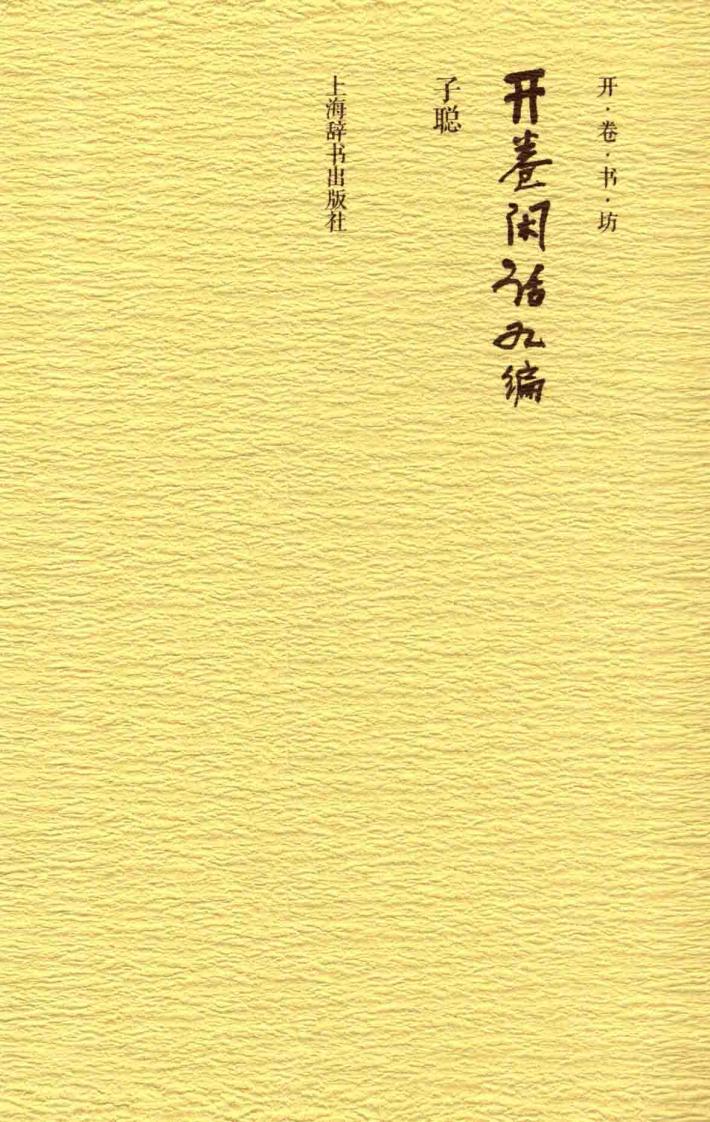 开·卷·书·坊
开卷闲话九编
子聪
上海辞书出版社